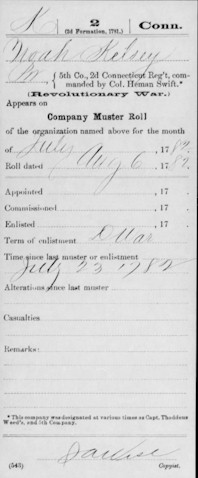 K 2 Conn.
(2d Formation, 1781.)
Noah Kelsey
5th Co., 2d Connecticut Reg't, com-
manded by Col. Heman Swift.*
(Revolutionary War.)
Appears on
Company Muster Roll
of the organization named above for the month
of July , 1782.
Roll dated Aug 6 , 1782.
Appointed , 17 .
Commissioned , 17 .
Enlisted , 17 .
Term of enlistment D War
Time since last muster or enlistment
July 23 1782
Alterations since last muster
Casualties
Remarks:
* This company was designated at various times as Capt. Thaddeus
Weed's, and 5th Company.
(543) Copyist.